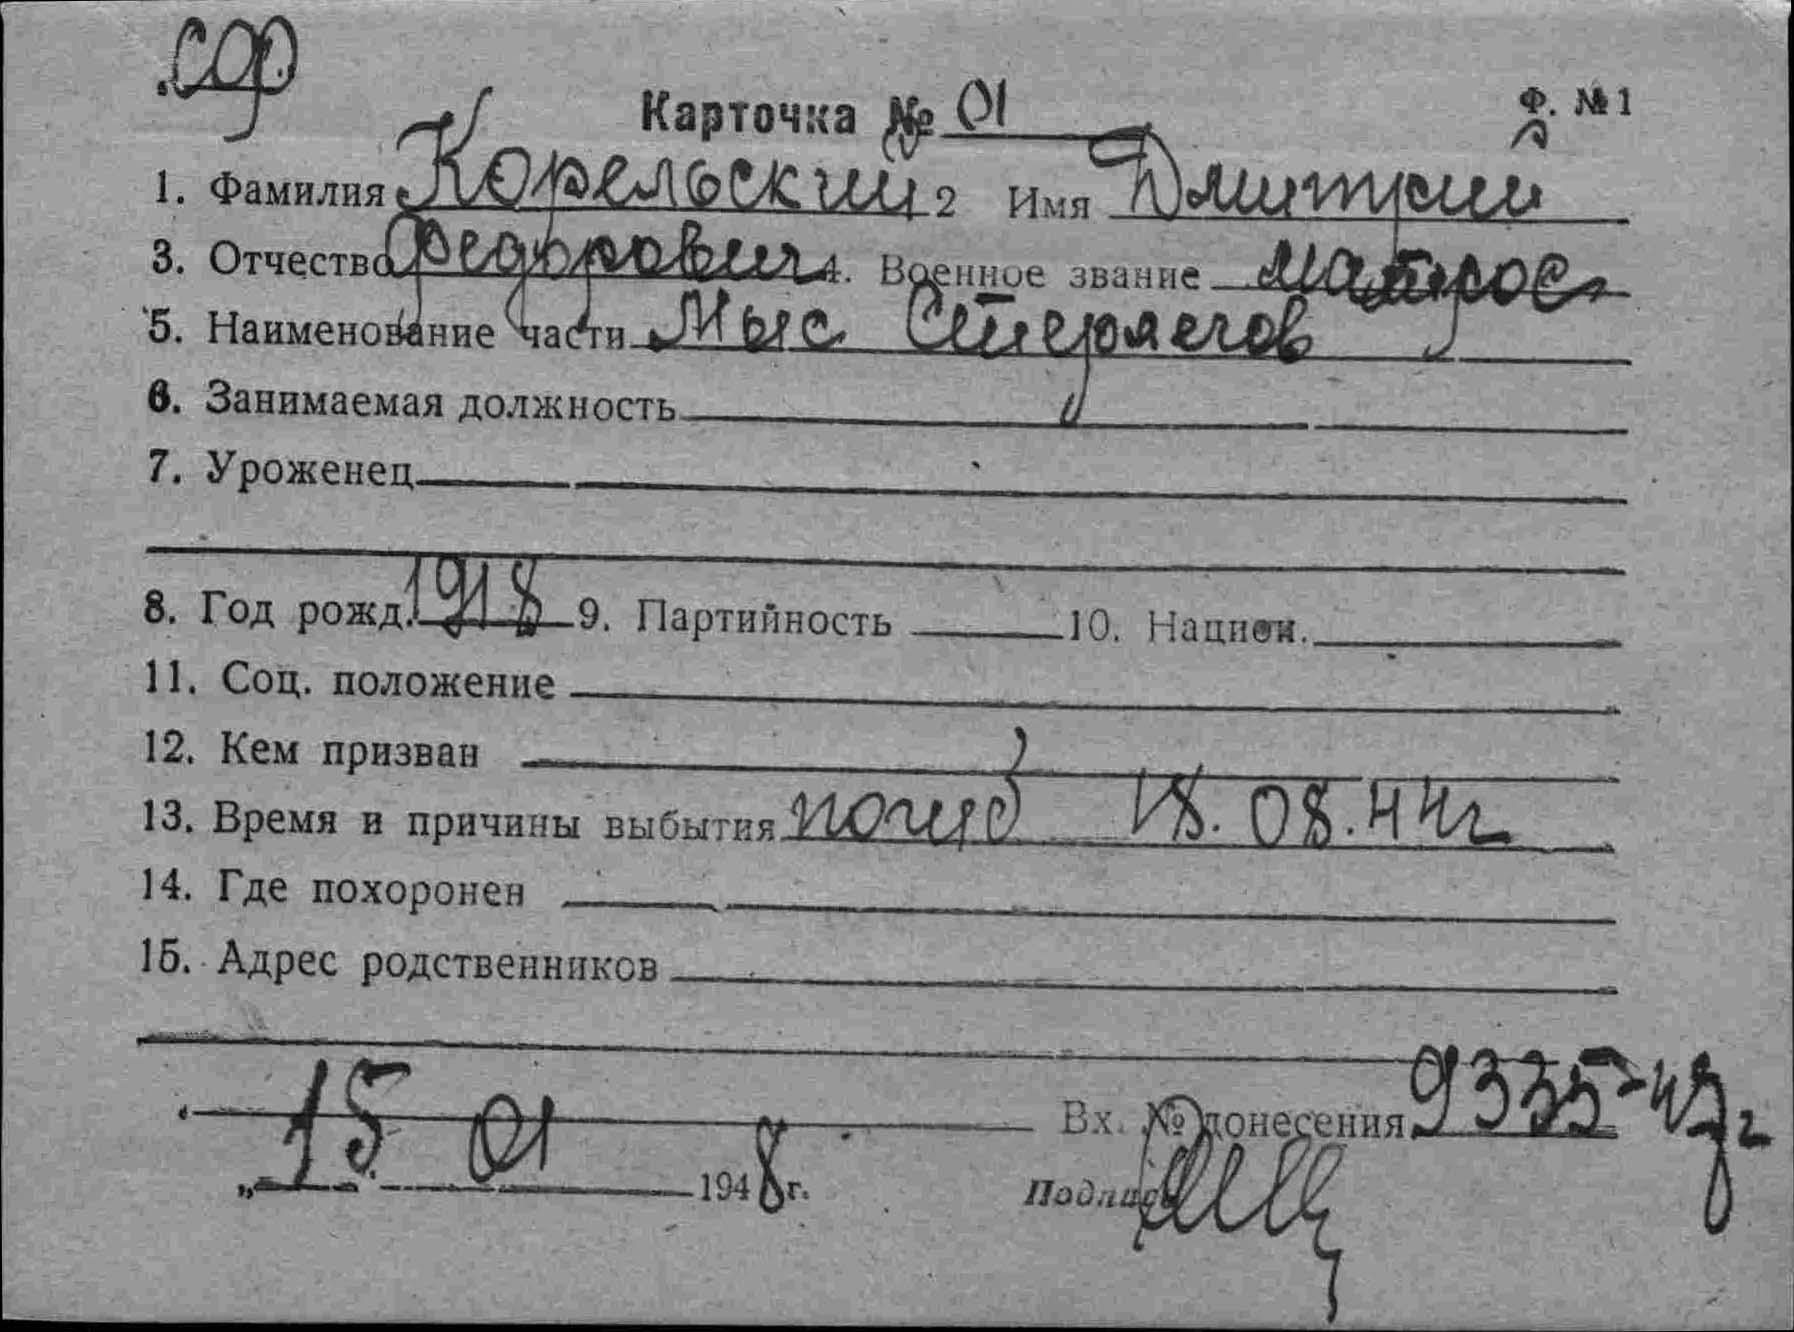 Карточка № 01
Ф. №1
1. Фамилия Корельский 2 Имя Дмитрий
3. Отчество Федорович 4. Военное звание матрос
5. Наименование части Мыс Стерлегов
6. Занимаемая должность
7. Уроженец
8. Год рожд. 1918 9. Партийность 10. Национ.
11. Соц. положение
12. Кем призван
13. Время и причины выбытия погиб 18.08.44г
14. Где похоронен
15. Адрес родственников
Вх. № донесения 9335-45г
„15 01 1948г.
Подпись